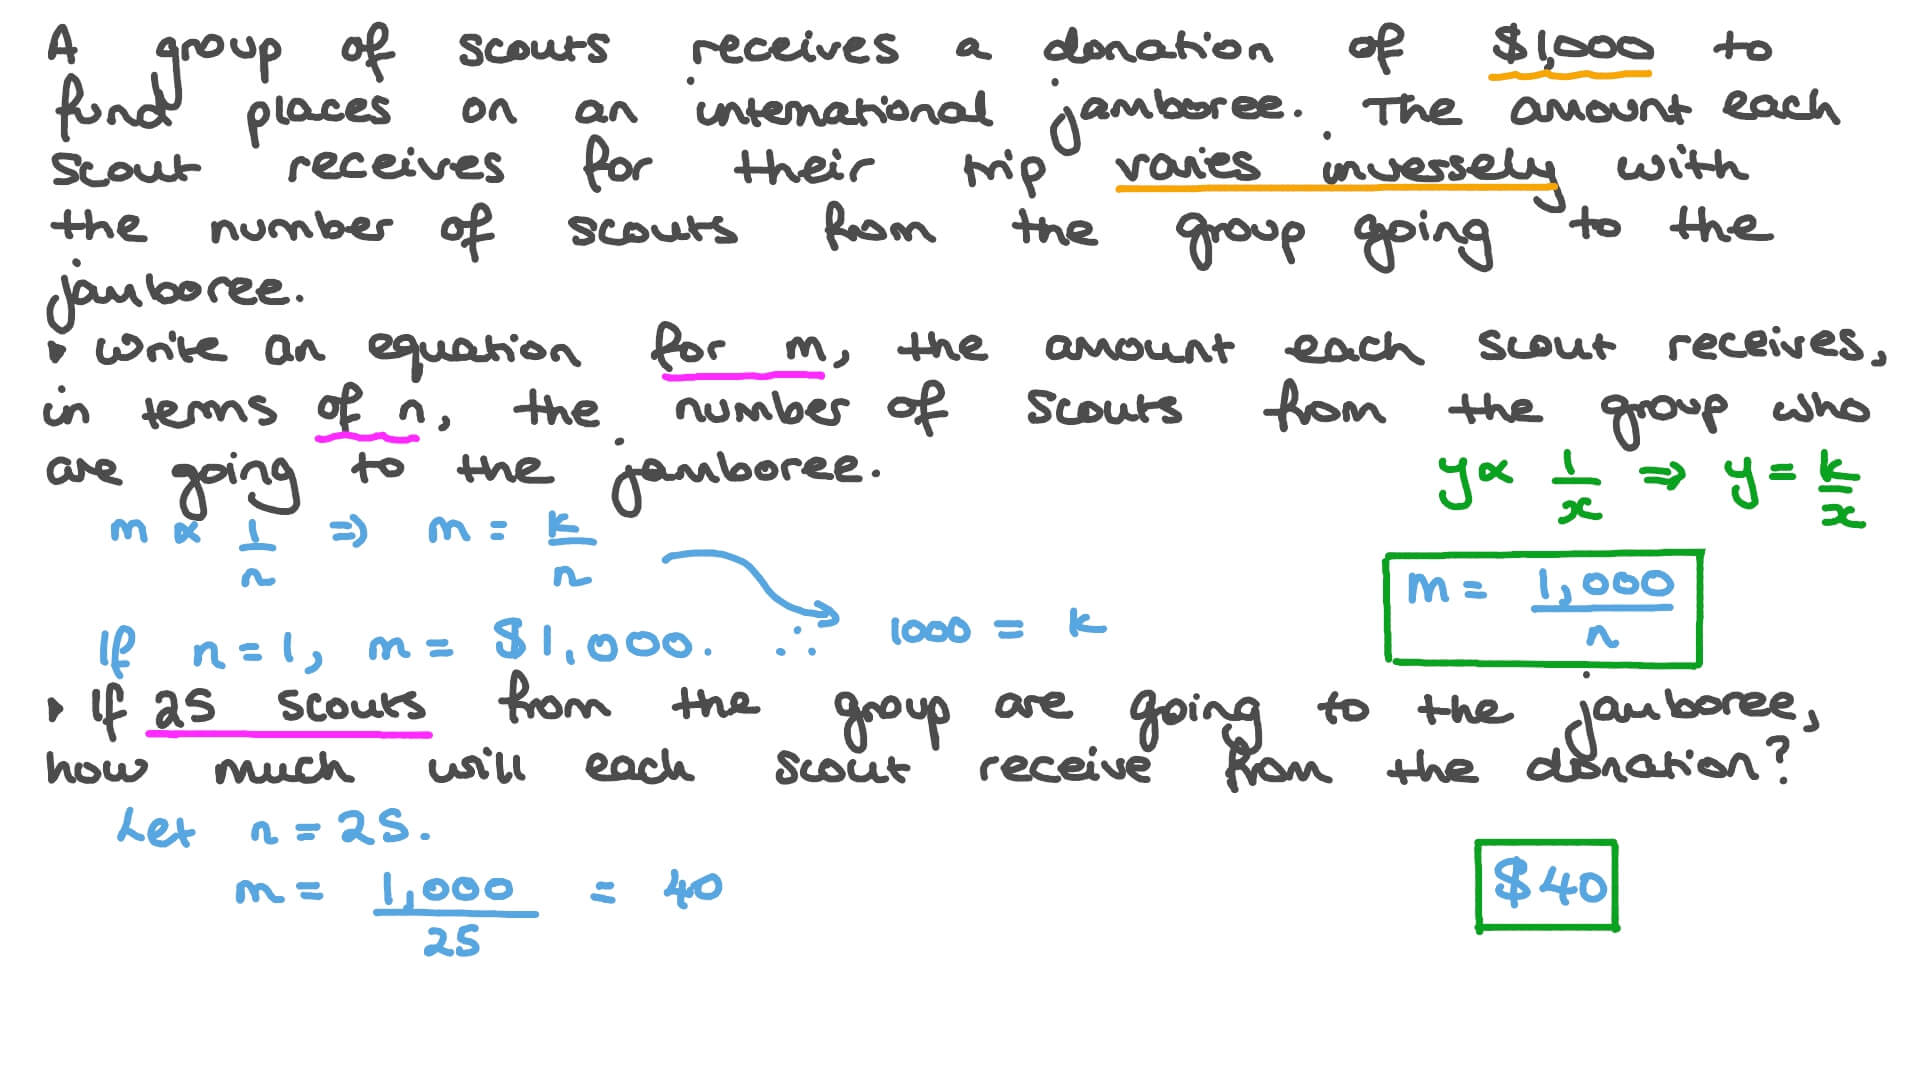 A group of scouts receives a donation of $1,000 to
fund places on an international jamboree. The amount each
scout receives for their trip varies inversely with
the number of scouts from the group going to the
jamboree.
▸ Write an equation for m, the amount each scout receives,
in terms of n, the number of scouts from the group who
are going to the jamboree.
y ∝ 1/x ⇒ y = k/x
m ∝ 1/n ⇒ m = k/n
m = 1,000/n
If n = 1, m = $1,000. ∴ 1000 = k
▸ If 25 scouts from the group are going to the jamboree,
how much will each scout receive from the donation?
Let n = 25.
m = 1,000/25 = 40
$40